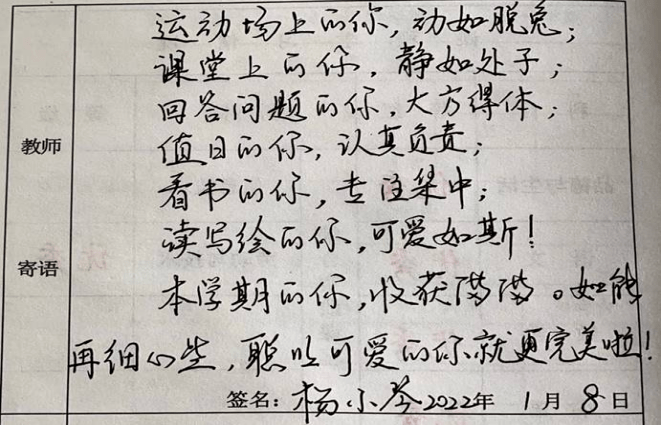 运动场上的你，动如脱兔；
课堂上的你，静如处子；
回答问题的你，大方得体；
教师
值日的你，认真负责；
看书的你，专注集中；
读写绘的你，可爱如斯！
寄语
本学期的你，收获满满。如能
再细心些，聪明可爱的你就更完美啦！
签名：杨小琴2022年 1月 8日